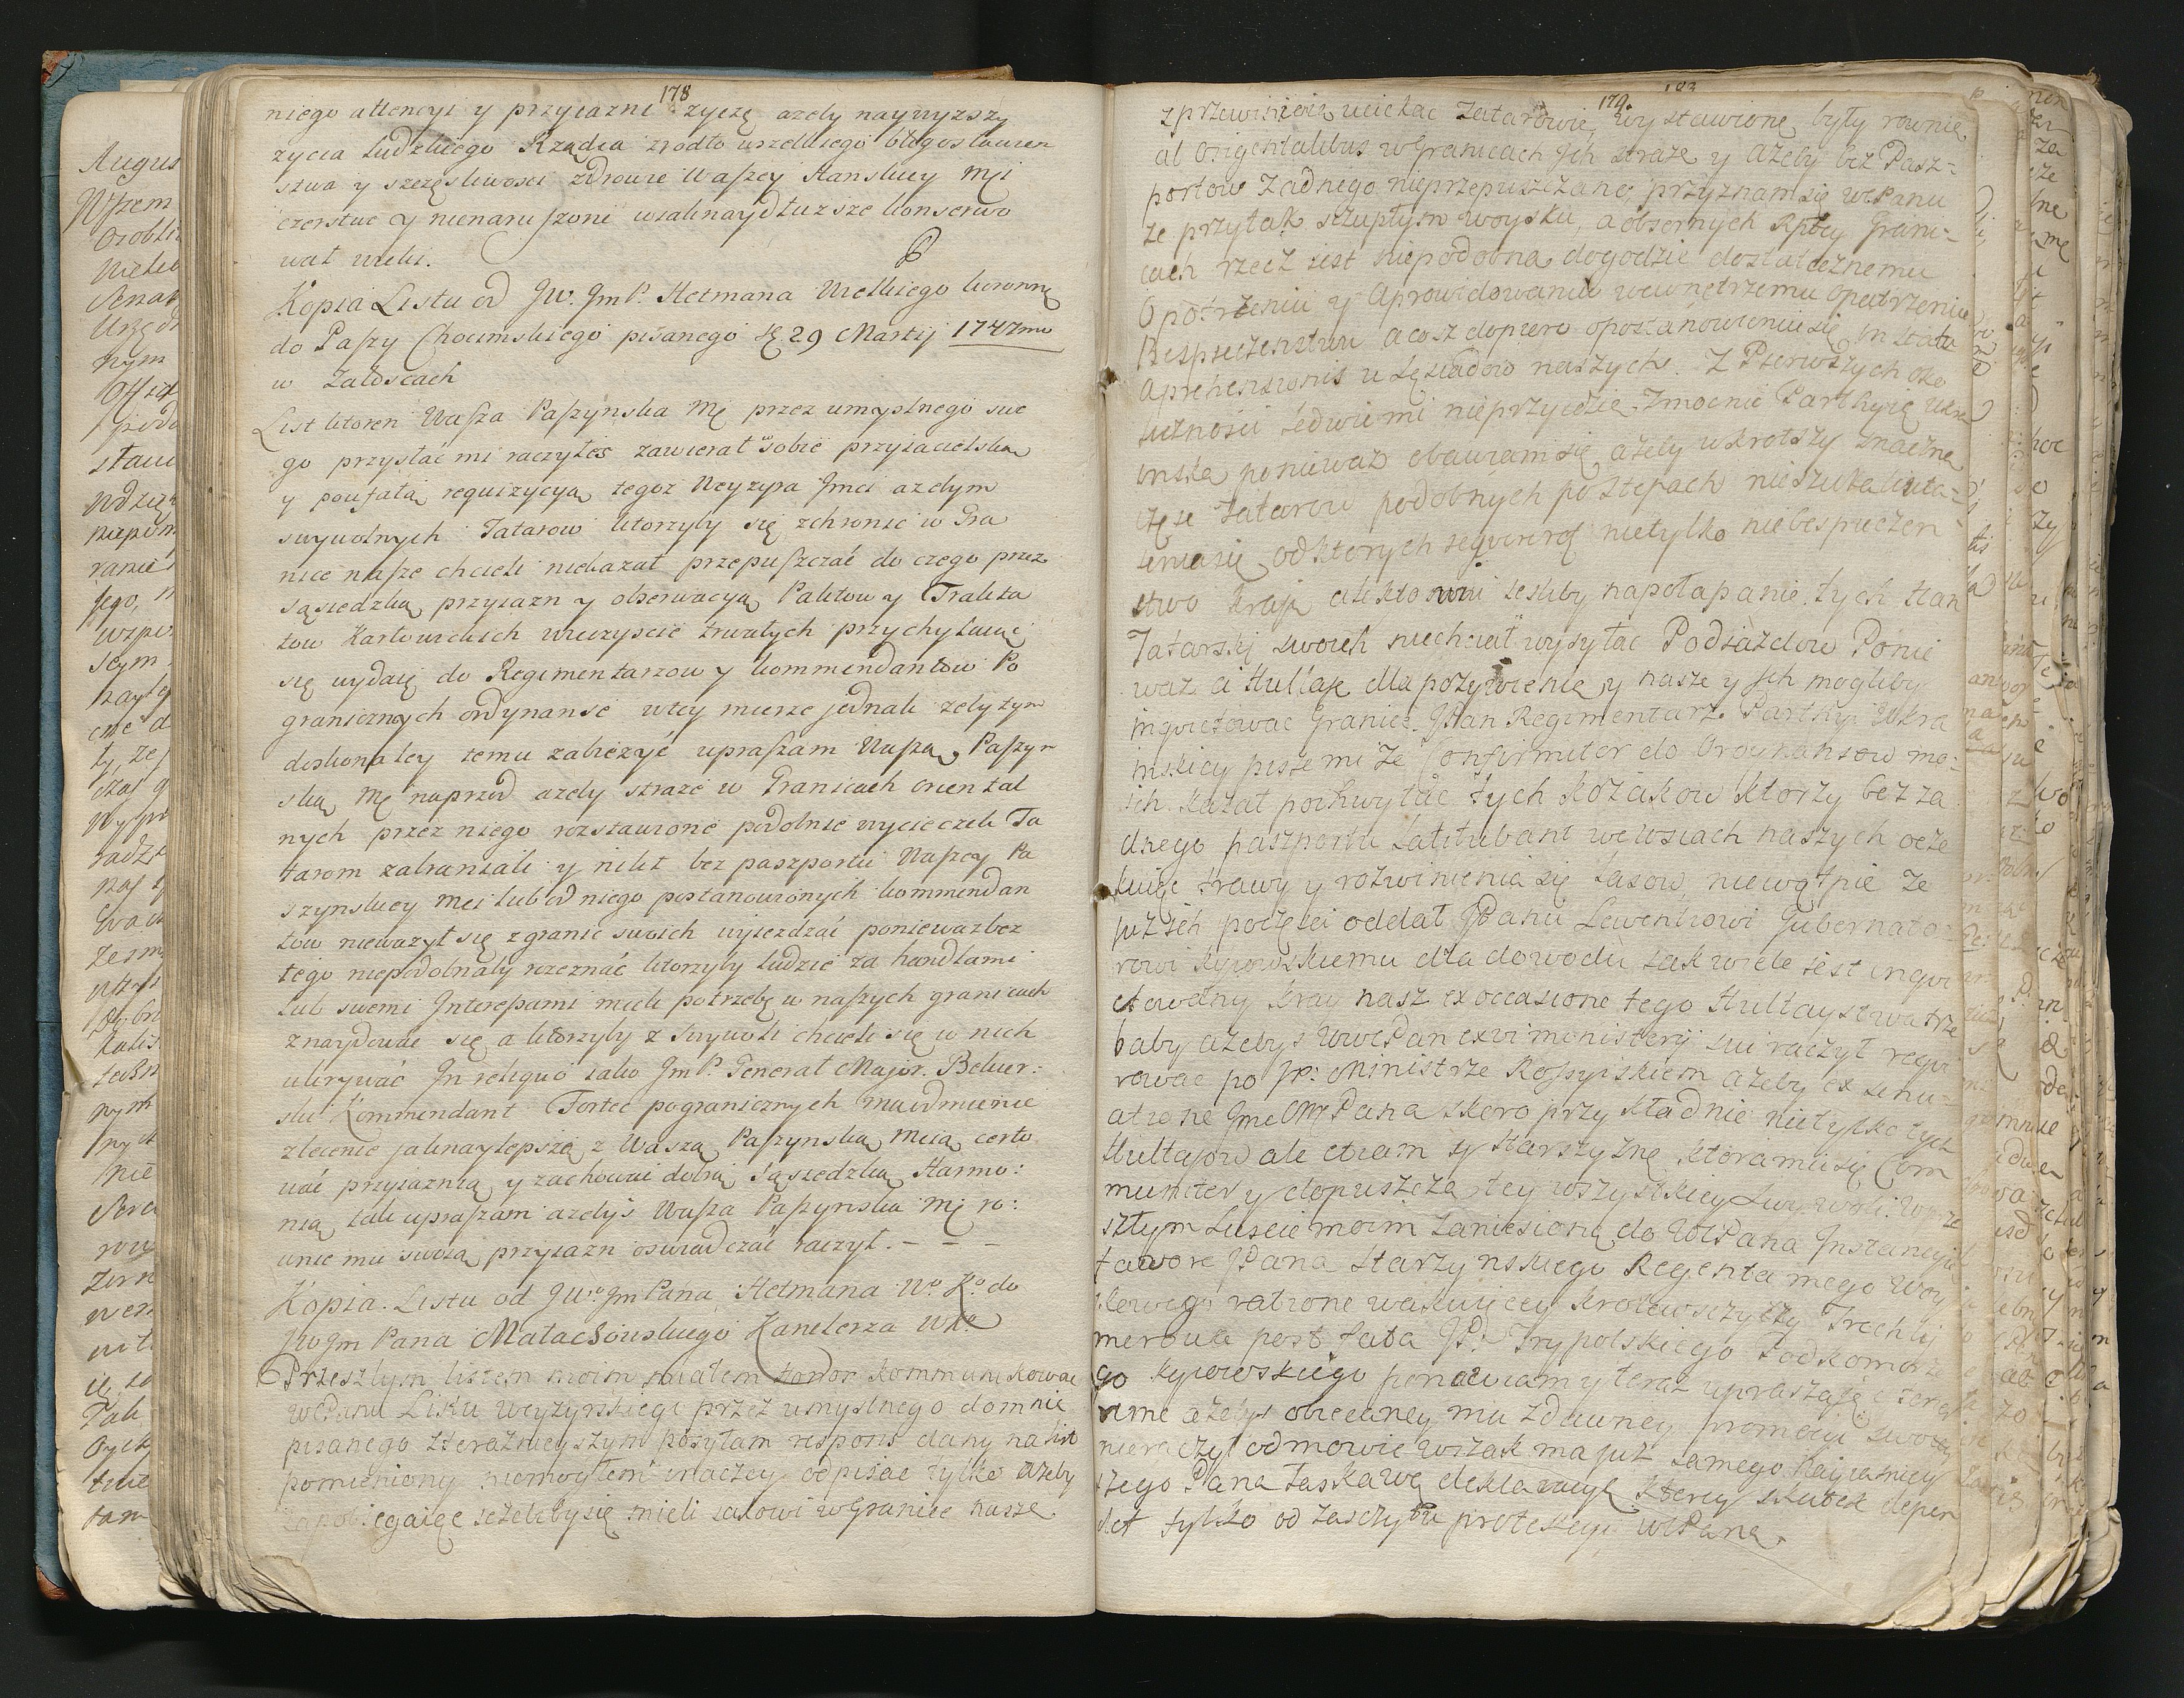 178
niego attencyi y przyiazni zyczę azeby naywyzszy
zycia ludzkiego Rządca zrodło wszelkiego błogosławien
stwa y szczęsliwosci zdrowie Waszey Hanskiey Mci
czerstwe y nienaruszone wiaknaydłuzsze konserwo
wał wieki.
Kopia Listu od Jw. JmP. Hetmana Wielkiego koronne
do Paszy Chocimskiego pisanego 29 Martij 1747mo
w Załoscach
List ktoren Wasza Paszynska Mć przez umyslnego swe
go przysłać mi raczyłes zawierał w sobie przyiacielską
y poufałą requizycyą tegoz Wezyra Jmci azebym
swywolnych Tatarow ktorzyby się zchronic w Gra
nice nasze chcieli niekazał przepuszczać do czego przez
sąsiedzką przyiazn y obserwacyą Paktow y Trakta
tow Karłowickich wieczyscie trwałych przychylaiąc
się wydaię do Regimentarzow y kommendantow Po
granicznych ordynanse w tey mierze jednak zeby tym
doskonaley temu zabiezyć upraszam Waszą Paszyn
ską Mć naprzod azeby straze w Granicach oriental
nych przez niego rozstawione podobnie wycieczek Ta
tarom zabraniali y nikt bez paszportu Waszey Pa
szynskiey Mci lub od niego postanowionych kommendan
tow niewazył się z granic swoich wyiezdzać poniewaz bez
tego niepodobnaby rozeznać ktorzyby ludzie za handlami
lub swemi Interessami mieli potrzebę w naszych granicach
znaydować się a ktorzyby z swywoli chcieli się w nich
ukrywać In reliquo iako JmP. General Major Bekier:
ski Kommendant Fortec pogranicznych ma odmienie
zlecenie jaknaylepszą z Waszą Paszynską Mcią certo
wać przyiaznią y zachować dobrą Sąsiedzką Harmo:
nią tak upraszam azebys Wasza Paszynska Mć ro:
wnie mu swoią przyiazn oswiadczać raczył. - - -
Kopia Listu od Jwo Jm Pana Hetmana Wo Ko do
Jwo Jm Pana Małachowskiego Kanclerza WKo
Przeszłym listem moim miałem honor kommunikowac
WMPanu Listu Wezyrskiego przez umyslnego do mnie
pisanego z teraznieyszym posyłam respons dany na list
pomieniony niemogłem inaczey odpisac tylko azeby
zapobiegaięc jezeliby się mieli iakowi w Granice nasze
179.
z przewinienia uciekac Tatarowie, wystawione były rownie
ab Orientalibus w Granicach Jch straze y azeby bez Pasz-
portow zadnego nieprzepuszczano, przyznam się WMPanu
ze przy tak szczupłym woysku, a obszernych Rptey Grani-
cach rzecz iest niepodobna dogodzic dostatecznemu
Opatrzeniu y Aprowidowaniu wewnętrznemu opatrzeniu
Bespieczenstwu a cosz dopiero o postanowieniu się in statu
aprehensionis u Sąsiadow naszych. Z Pierwszych oko
licznosci ledwie mi nieprzydzie Zmocnic Parthyię Ukra
inską poniewaz obawiam się azeby wkrotszy znaczna
częsc Tatarow podobnych po stepach nieszukali uta-
ienia się, od ktorych sequereret nietylko niebespieczen
stwo Kraju ale kto wie iesliby na połapanie tych Han
Tatarski swoich niechciał wysyłac Podiazdow Ponie
waz ci Hultaje dla pozywienia y nasze y Jch mogliby
inquietowac Granice. JPan Regimentarz Parthyi Ukra
inskiey pisze mi ze Conformiter do Ordynansow mo:
ich kazał pochwytac tych Kozakow ktorzy bez za
dnego paszportu latitubant we wsiach naszych ocze
kuięc trawy y rozwinienia się lasow, niewątpie ze
juz ich poczęsci oddał JPanu Lewentiowi Gubernato-
rowi Kyiowskiemu dla dowodu iak wiele iest inqui
etowany Kray nasz ex occasione tego Hultaystwa trze
baby azebys WMPan ex vi ministerij sui raczył requi
rowac po JP: Ministrze Rossyiskiem azeby ex insinu-
atione Jme Pana skoro przykładnie nietylko tych
Hultajow ale etiam y starszyznę, ktora mu się Com
muniter y dopuszcza tey wszystkiey swywoli. W prze
szłym Liscie moim zaniesioną do WMPana Instancyię
favore JPana Starzynskiego Regenta mego Woy
skowego ratione wakuięcey Krolewszczyzny Trechty
merowa post fata JP: Trypolskiego Podkomorze
go Kyiowskiego ponawiam y teraz upraszaiąc
ime azebys obiecaney mu zdawney promocyi swoiey
nieraczył odmowic wszak ma juz samego Nayiasniey
szego Pana łaskawę deklaracyę ktorey skutek depen
det tylko od zaszczytu protekcyi WMPana.